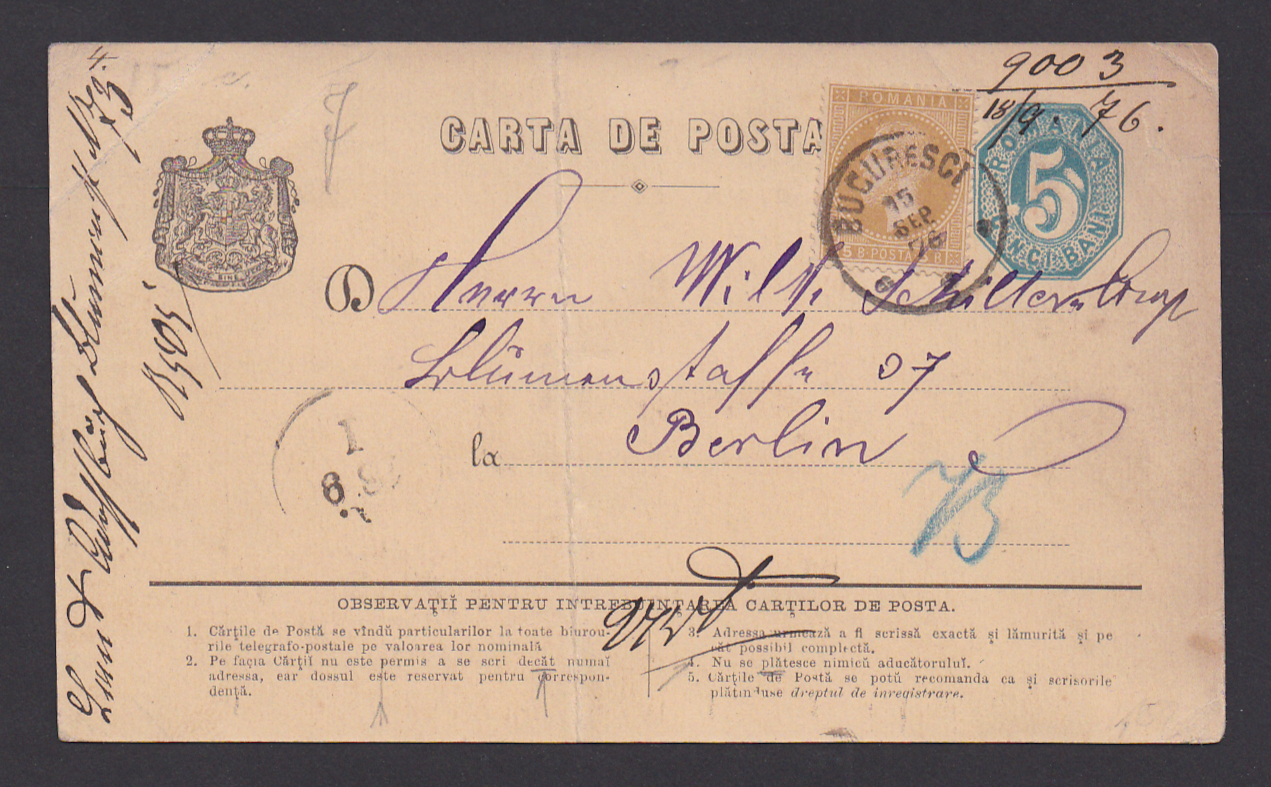 9003
18/9. 76.
CARTA DE POSTA
ROMANIA
5 B-POSTA
BUCURESCI
15
SEP
76
ROMANIA
5
CINCI BANI
D Herrn Wilh.
27
la Berlin
1
6
73
OBSERVAȚIĬ PENTRU INTREBUINȚAREA CARȚILOR DE POSTA.
1. Cărțile de Postă se vîndŭ particularilor la toate biurou-
rile telegrafo-postale pe valoarea lor nominală
2. Pe facia Cărțiĭ nu este permis a se scri decât numaĭ
adressa, ear dossul este reservat pentru correspon-
dență.
3. Adressa urmează a fi scrissă exactă și lămurită și pe
cât possibil complectă.
4. Nu se plătesce nimicŭ aducătoruluĭ.
5. Cărțile de Postă se potŭ recomanda ca și scrisorile
plătinduse dreptul de inregistrare.